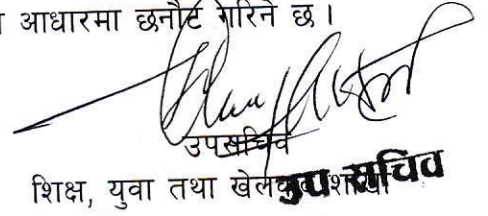 आधारमा छनौट गरिने छ ।
उपसचिव
शिक्ष, युवा तथा खेलकुद शाखा
उप सचिव